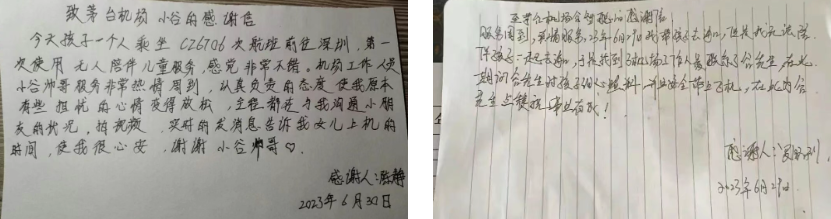 致茅台机场 小谷的感谢信
今天孩子一个人乘坐 CZ6706 次航班前往深圳,第一
次使用 无人陪伴儿童服务,感觉非常不错。机场工作人员
小谷帅哥服务非常热情周到,认真负责的态度使我原本
有些担忧的心情变得放松,全程都在与我沟通小朋
友的状况,拍视频,实时的发消息告诉我女儿上机的
时间,使我很心安,谢谢 小谷帅哥♡。
感谢人:陈静
2023年6月30日
至茅台机场谷智 的感谢信
服务周到,真情服务,23年6月29日我带孩子去海口,但我无法
陪孩子一起去海口,于是找到了机场工作人员 谷先生,在此
期间谷先生对孩子细心照料,并且安全带上飞机,在此为谷
先生点赞,
感谢人:
2023年6月29日